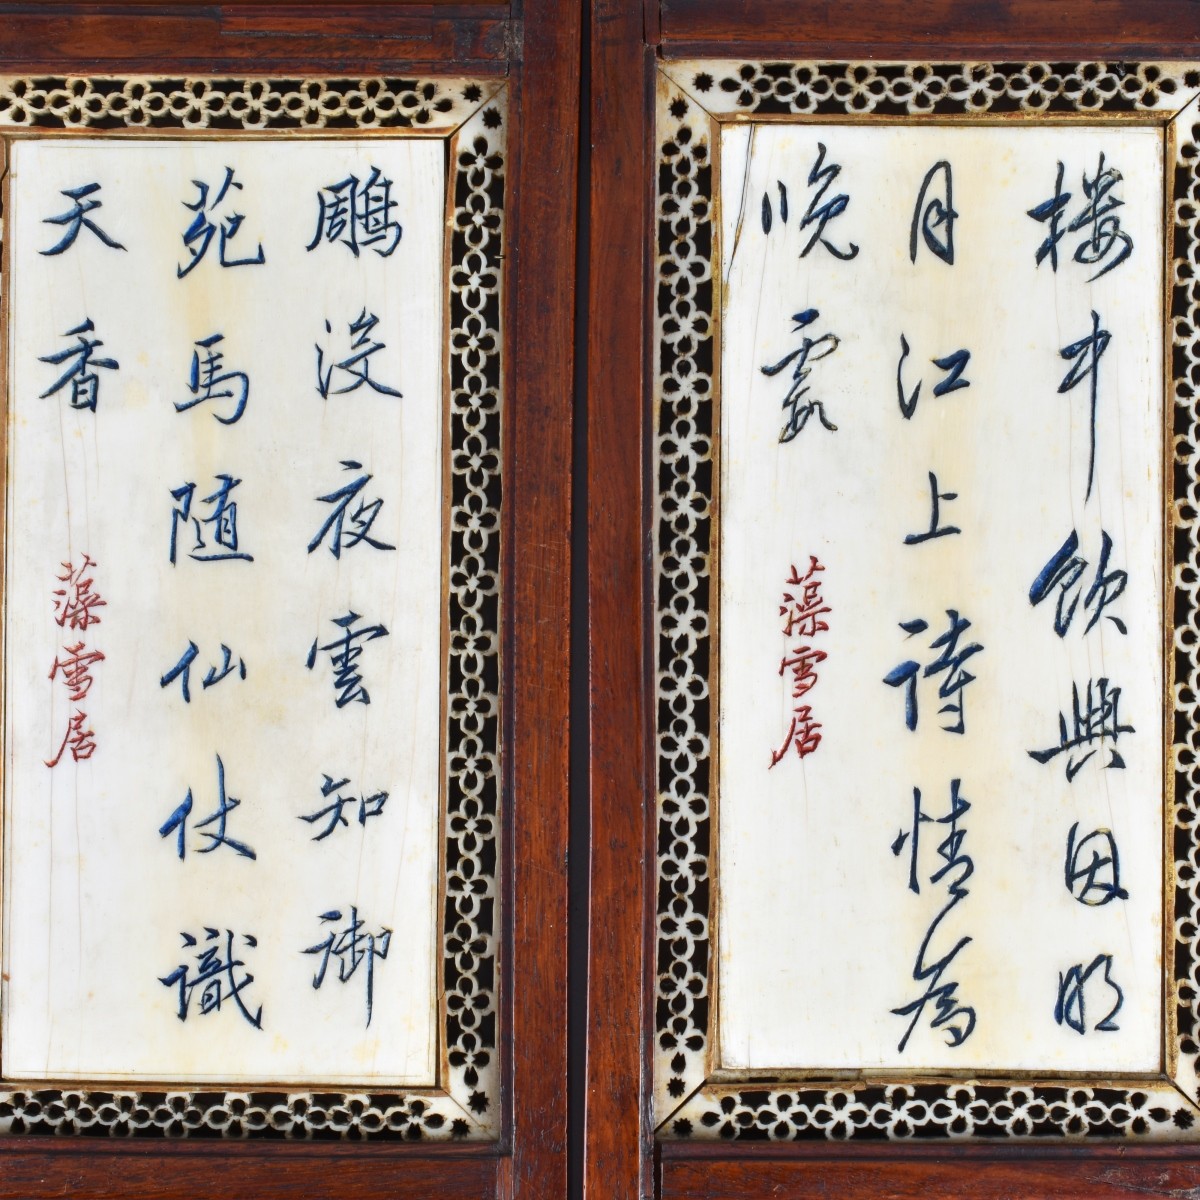 樓中飲興因明
月江上詩情為
晚霞
藻雪居
鵰沒夜雲知御
苑馬隨仙仗識
天香
藻雪居